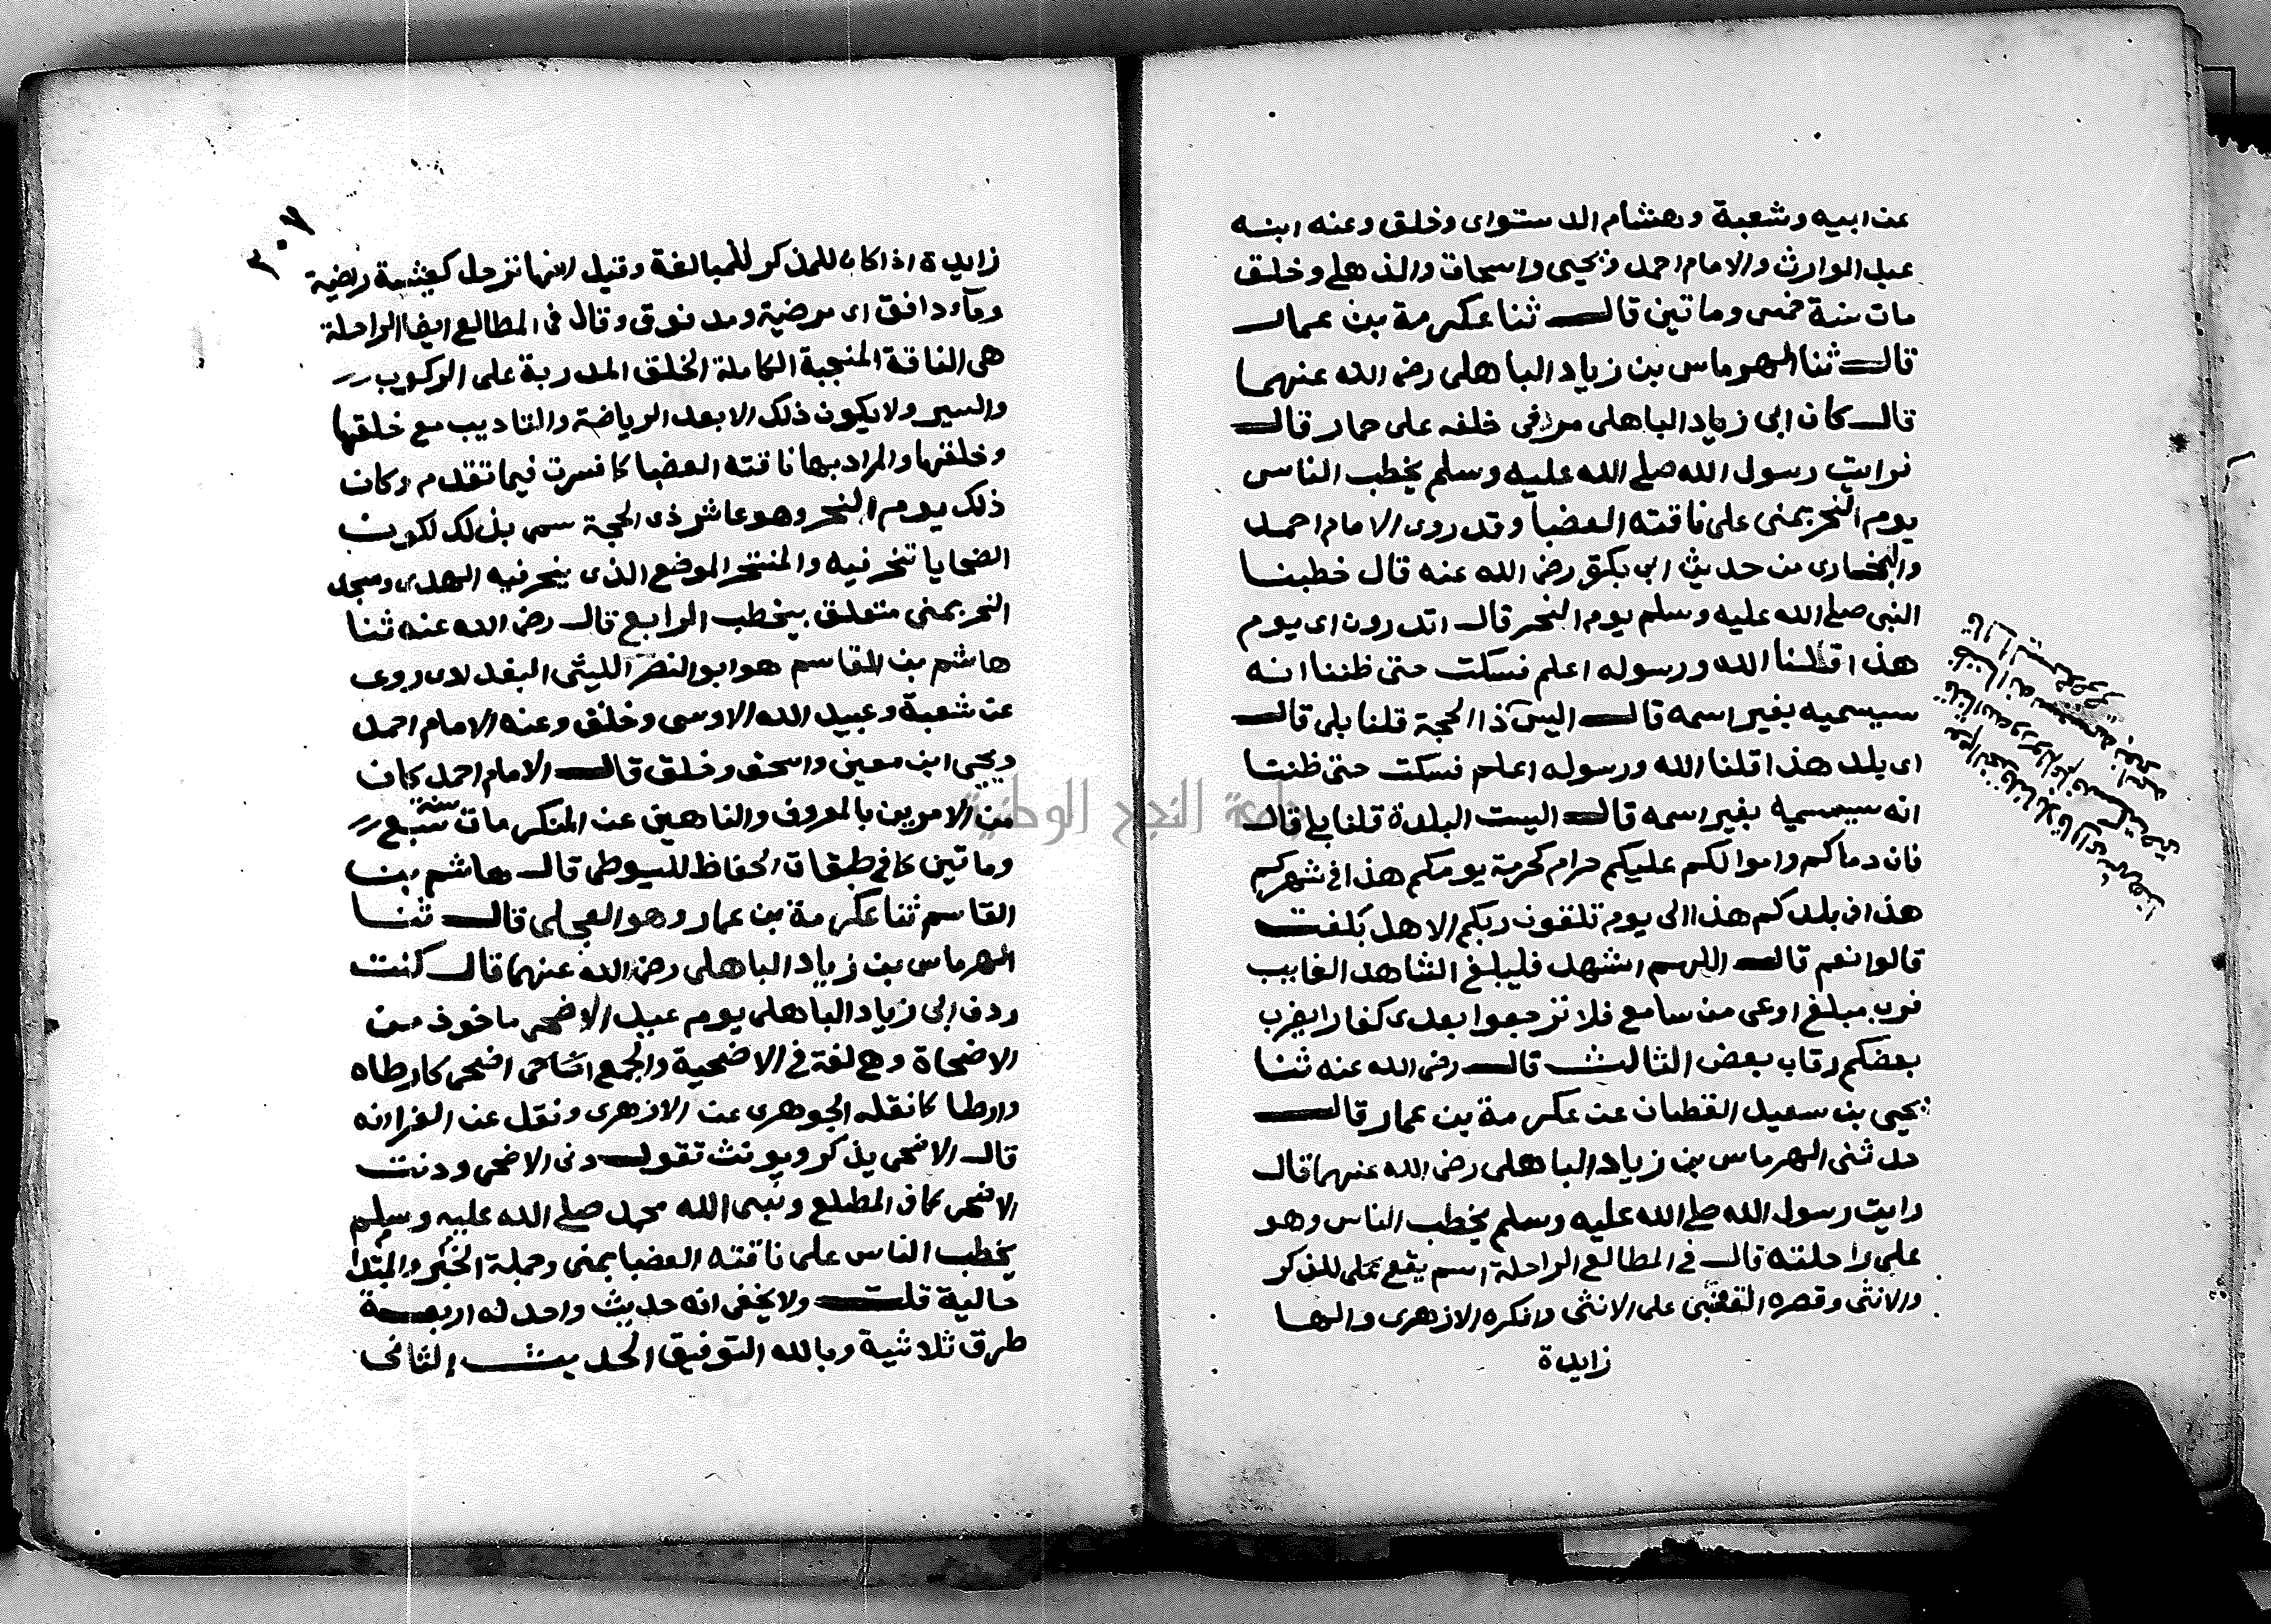 عن ابيه وشعبة وهشام الدستواى وخلق وعنه ابنه
عبد الوارث والامام احمد ويحيى واسحاق والذهلى وخلق
مات سنة خمس وماتين قال ثنا عكرمة بن عمار
قال ثنا الهرماس بن زياد الباهلى رضى الله عنهما
قال كان ابى زياد الباهلى مردفى خلفه على حمار قال
فرايت رسول الله صلى الله عليه وسلم يخطب الناس
يوم النحر بمنى على ناقته العضبا وقد روى الامام احمد
والبخارى من حديث ابى بكرة رضى الله عنه قال خطبنا
النبى صلى الله عليه وسلم يوم النحر قال اتدرون اى يوم
هذا قلنا الله ورسوله اعلم فسكت حتى ظننا انه
سيسميه بغير اسمه قال اليس ذا الحجة قلنا بلى قال
اى بلد هذا قلنا الله ورسوله اعلم فسكت حتى ظننا
انه سيسميه بغير اسمه قال اليست البلدة قلنا بلى قال
فان دماكم واموالكم عليكم حرام كحرمة يومكم هذا فى شهركم
هذا فى بلدكم هذا الى يوم تلقون ربكم الا هل بلغت
قالوا نعم قال اللهم اشهد فليبلغ الشاهد الغايب
فرب مبلغ اوعى من سامع فلا ترجعوا بعدى كفارا يضرب
بعضكم رقاب بعض الثالث قال رضى الله عنه ثنا
يحيى بن سعيد القطان عن عكرمة بن عمار قال
حدثنى الهرماس بن زياد الباهلى رضى الله عنهما قال
رايت رسول الله صلى الله عليه وسلم يخطب الناس وهو
على راحلته قال فى المطالع الراحلة اسم يقع على للذكر
والانثى وقصره القتيبى على الانثى وانكره الازهرى والها
زايدة
٣٠٧
زايدة اذا كان للمذكر للمبالغة وقيل لانها ترحل كعيشة راضية
وماء دافق اى مرضية ومدفوق وقال فى المطالع ايضا الراحلة
هى الناقة المنجبة الكاملة الخلق المدربة على الركوب
والسير ولا يكون ذلك الا بعد الرياضة والتاديب مع خلقها
وخلقتها والمراد بها ناقته العضبا كما فسرت فيما تقدم وكان
ذلك يوم النحر وهو عاشر ذى الحجة سمى بذلك لكون
الضحايا تنحر فيه والمنحر الموضع الذى ينحر فيه الهدى ومسجد
النحر بمنى متعلق بيخطب الرابع قال رضى الله عنه ثنا
هاشم بن القاسم هو ابو النضر الليثى البغدادى روى
عن شعبة وعبيد الله الاوسى وخلق وعنه الامام احمد
ويحيى ابن معين واسحق وخلق قال الامام احمد كان
من الامرين بالمعروف والناهين عن المنكر مات سنة سبع
وماتين كما فى طبقات الحفاظ للسيوطى قال هاشم بن
القاسم ثنا عكرمة بن عمار وهو العجلى قال ثنا
الهرماس بن زياد الباهلى رضى الله عنهما قال كنت
ردف ابى زياد الباهلى يوم عيد الاضحى ماخوذ من
الاضحاة وهى لغة فى الاضحية والجمع اضاحى اضحى كارطاه
وارطا كما نقله الجوهرى عن الازهرى ونقل عن الفرا انه
قال الاضحى يذكر ويونث تقول دنى الاضحى ودنت
الاضحى كما فى المطلع ونبى الله محمد صلى الله عليه وسلم
يخطب الناس على ناقته العضبا بمنى وجملة الخبر والمبتدا
حالية قلت ولا يخفى انه حديث واحد له اربعة
طرق ثلاثية وبالله التوفيق الحديث الثانى
جامعة النجاح الوطنية